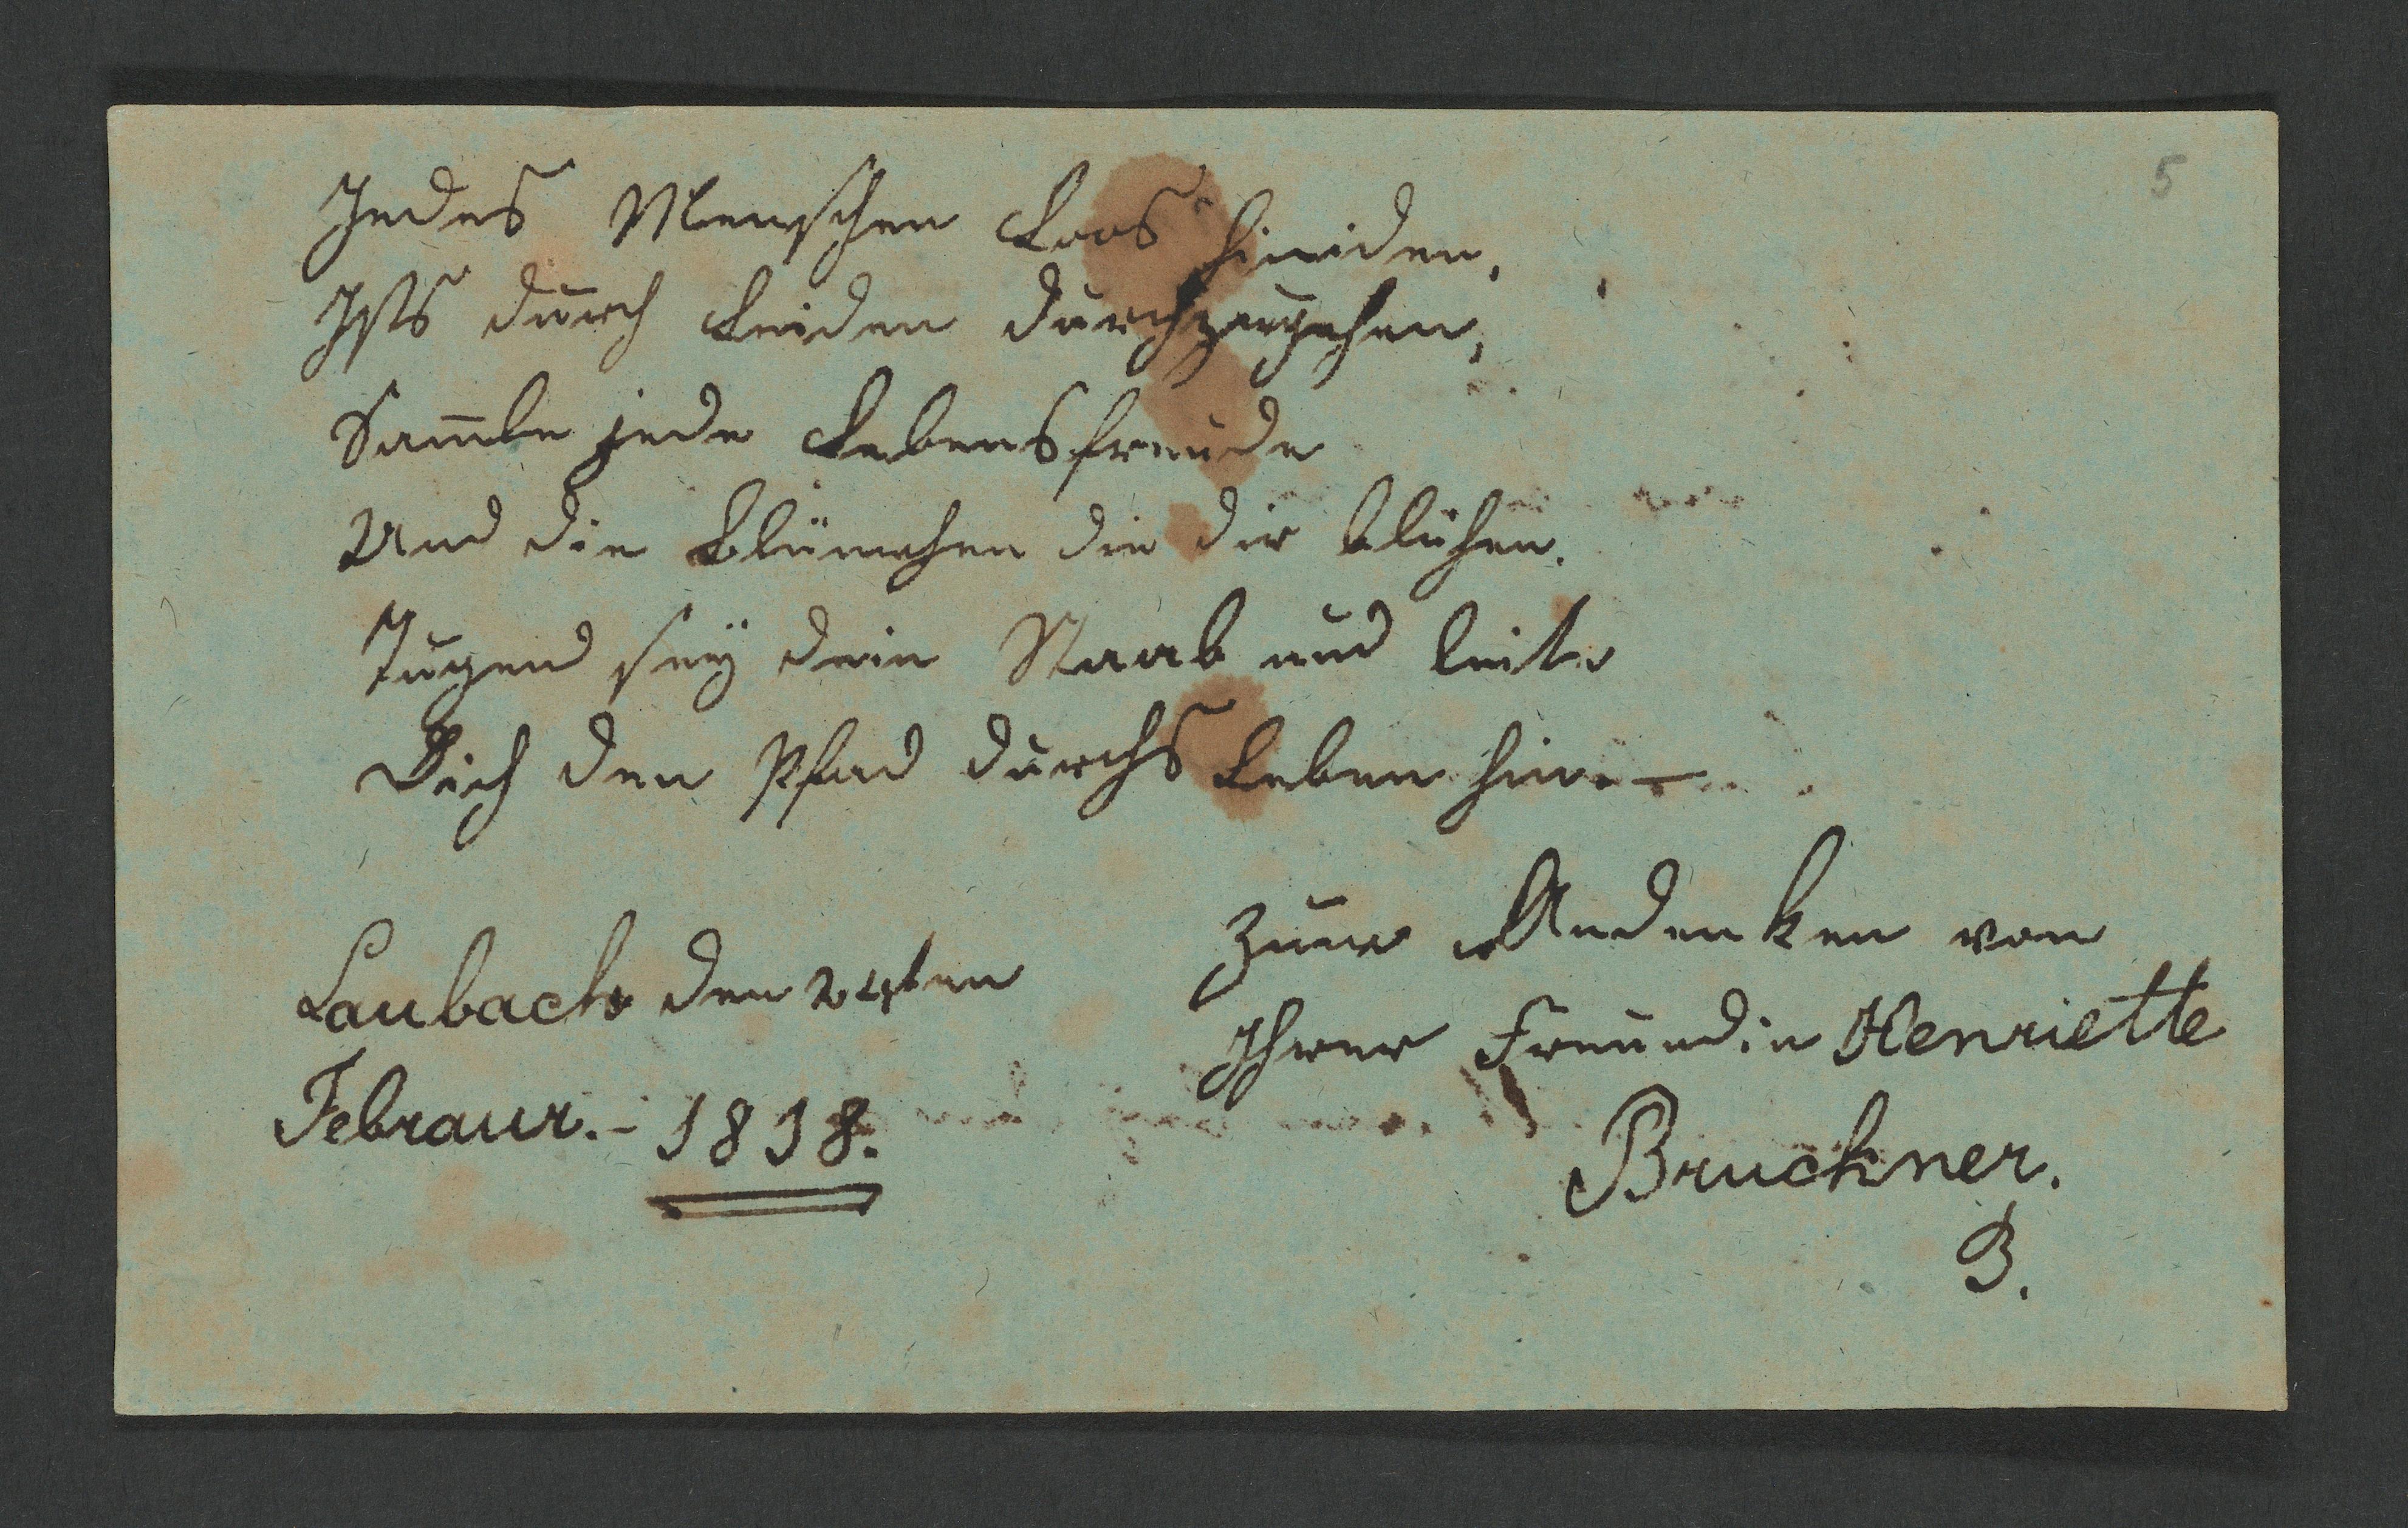 5
Jedes Menschen Loos hiniden,
Ists durch Leiden durchzugehen,
Samle jede Lebensfreude
Und die Blümchen die dir blühen.
Tugend seÿ dein Staab und leite
Dich den Pfad durchs Leben hin. –
Zum Andenken von
Ihrer Freundin Henriette
Bruckner.
B.
Laubach den 24ten
Febraur. – 1818.